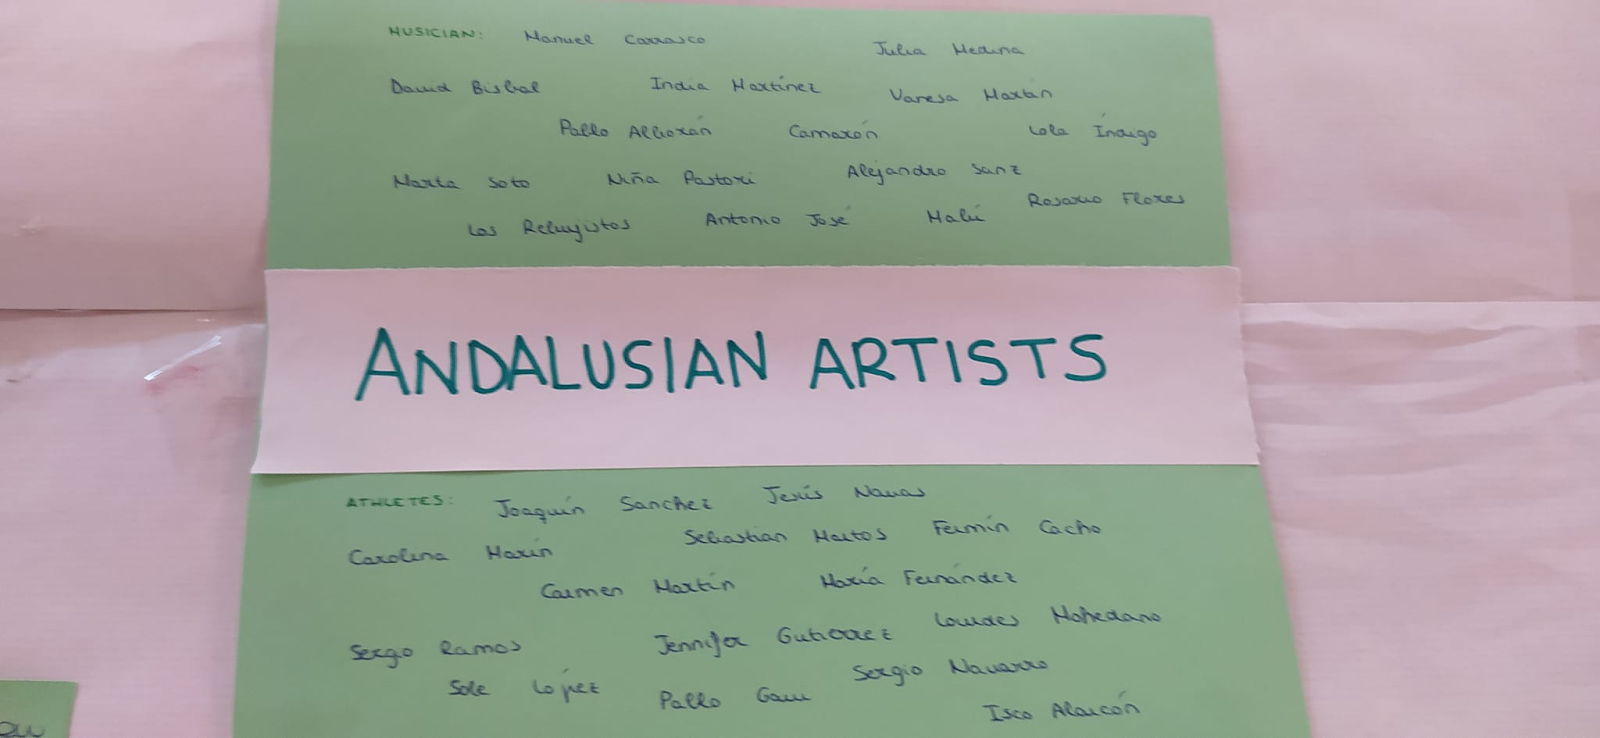 MUSICIAN: Manuel Carrasco Julia Medina
David Bisbal India Martínez Vanesa Martín
Pablo Alborán Camarón Lola Índigo
Marta Soto Niña Pastori Alejandro Sanz
Los Rebujitos Antonio José Malú Rosario Flores
ANDALUSIAN ARTISTS
ATHLETES: Joaquín Sanchez Jesús Navas
Carolina Marín Sebastian Martos Fermín Cacho
Carmen Martín María Fernández
Sergio Ramos Jennifer Gutierrez Lourdes Mohedano
Sole López Pablo Gavi Sergio Navarro
Isco Alarcón